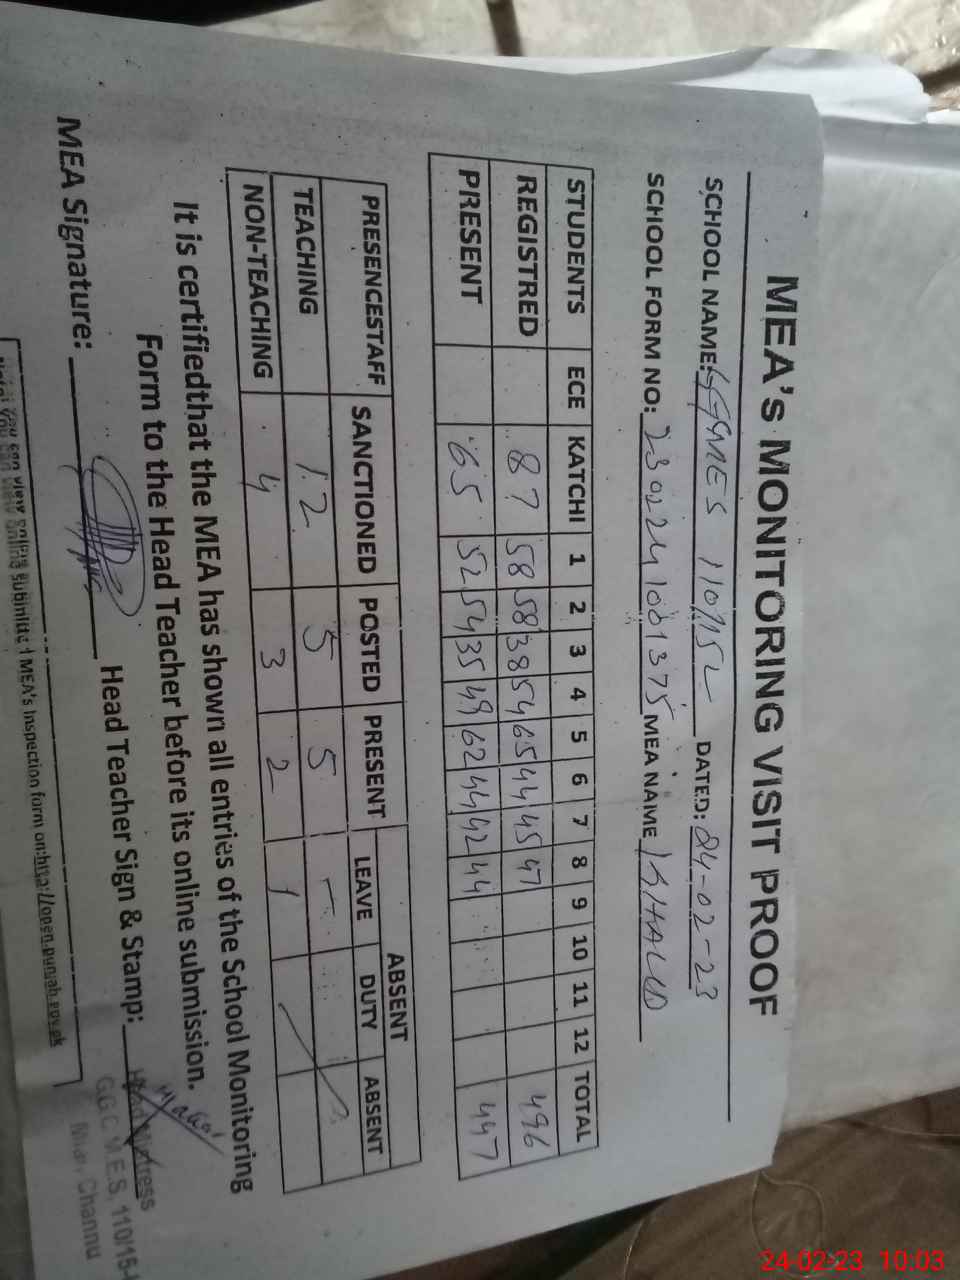 MEA's MONITORING VISIT PROOF
SCHOOL NAME: GGMES 110/15L DATED: 24-02-23
SCHOOL FORM NO: 2302241001375 MEA NAME KHALID
STUDENTS ECE KATCHI 1 2 3 4 5 6 7 8 9 10 11 12 TOTAL
REGISTRED 87 58 58 38 54 65 44 45 47 496
PRESENT 65 52 54 35 49 62 44 42 44 447
PRESENCESTAFF SANCTIONED POSTED PRESENT ABSENT
LEAVE DUTY ABSENT
TEACHING 12 5 5 -
NON-TEACHING 4 3 2 1
It is certifiedthat the MEA has shown all entries of the School Monitoring
Form to the Head Teacher before its online submission.
MEA Signature: Head Teacher Sign & Stamp:
Head Mistress
G.G.C.M.E.S. 110/15-L
Mian Channu
You can view online submitted MEA's Inspection form on:http://open.punjab.gov.pk
24-02-23 10:03